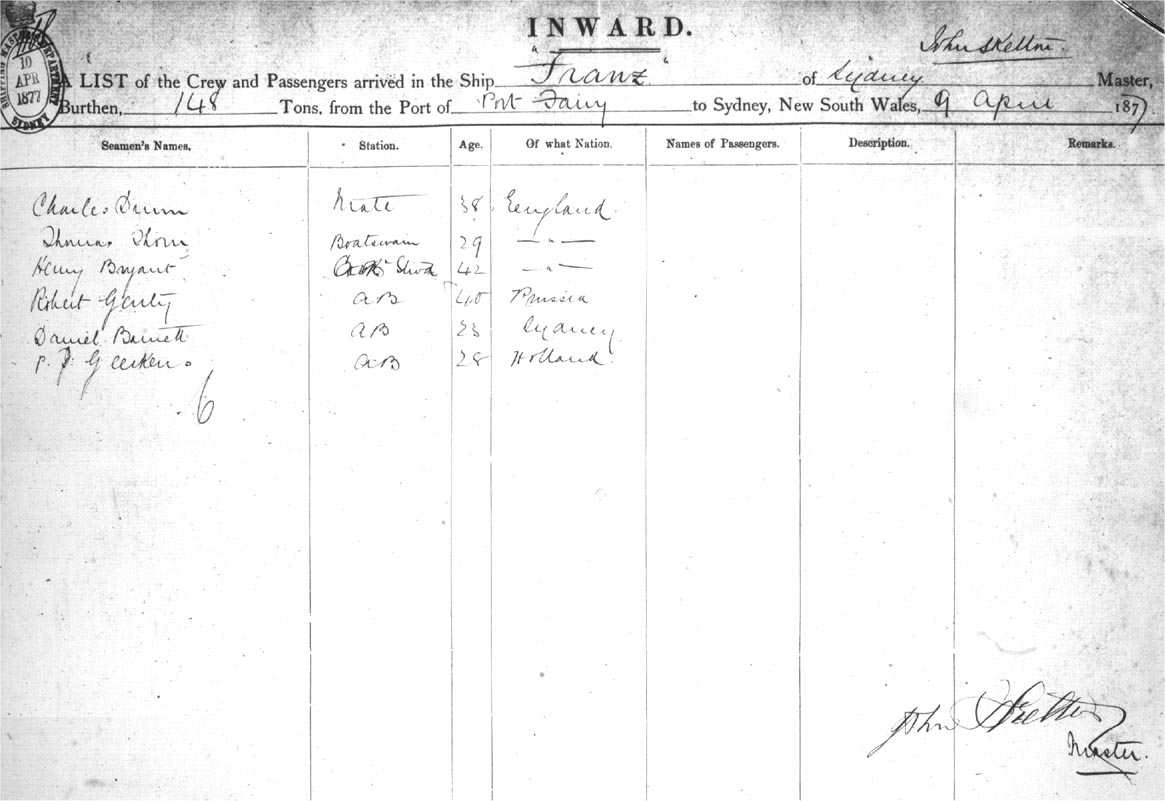 INWARD.
John Skelton.
A LIST of the Crew and Passengers arrived in the Ship "Franz" of Sydney Master,
Burthen, 148 Tons, from the Port of Port Fairy to Sydney, New South Wales, 9 April 1877.
SHIPPING MASTER'S DEPARTMENT
10
APR
1877
SYDNEY
Seamen's Names. Station. Age. Of what Nation. Names of Passengers. Description. Remarks.
Charles Mate 38 England.
Thomas Thorn Boatswain 29 — " —
Henry Bryant 42 — " —
Robert AB 40 Prussia
Daniel Barnett AB Sydney
P. J. Geerkens AB 28 Holland.
6
John Skelton
Master.